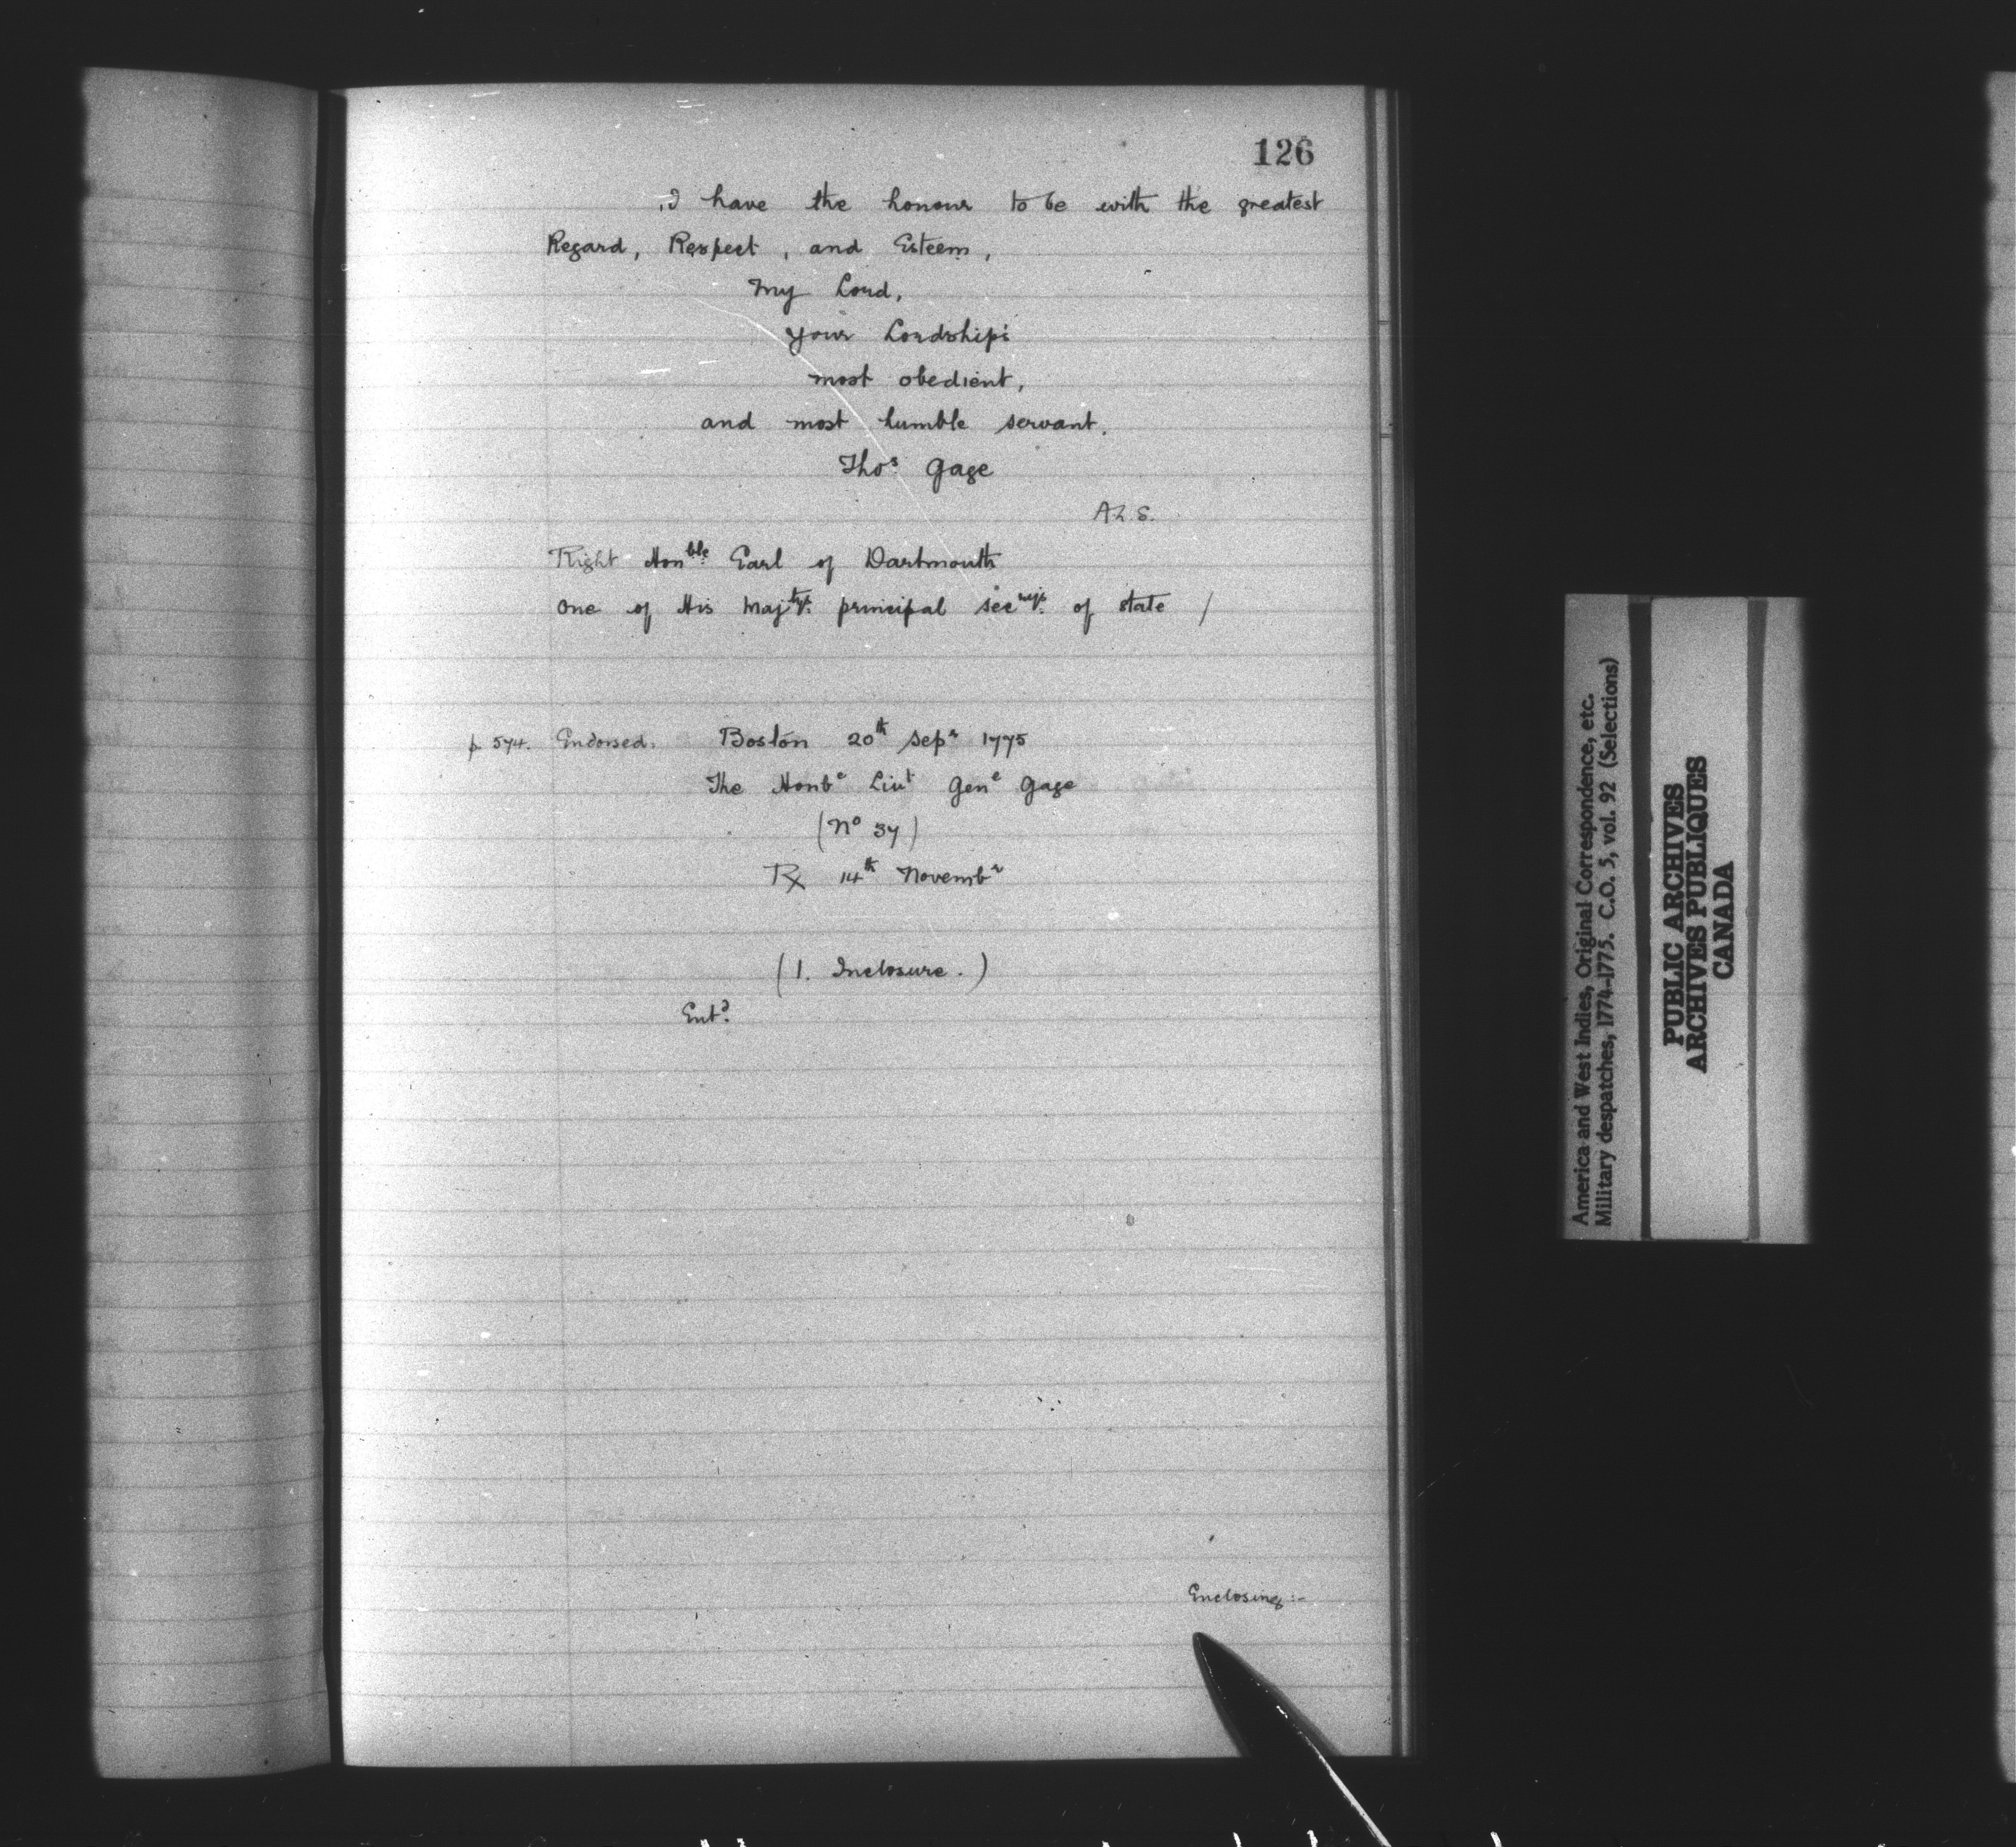 126
I have the honour to be with the greatest
Regard, Respect, and Esteem,
My Lord,
Your Lordship's
most obedient,
and most humble servant.
Thos Gage
A.L.S.
Right Honble Earl of Dartmouth
One of His Majtys principal Secrys of State /
p. 574. Endorsed. Boston 20th Sepr 1775
The Honbe Liut Gene Gage
(No 37)
Rx 14th Novembr
(1. Inclosure.)
Entd.
Enclosing:-
America and West Indies, Original Correspondence, etc.
Military despatches, 1774-1775. C.O. 5, vol. 92 (Selections)
PUBLIC ARCHIVES
ARCHIVES PUBLIQUES
CANADA